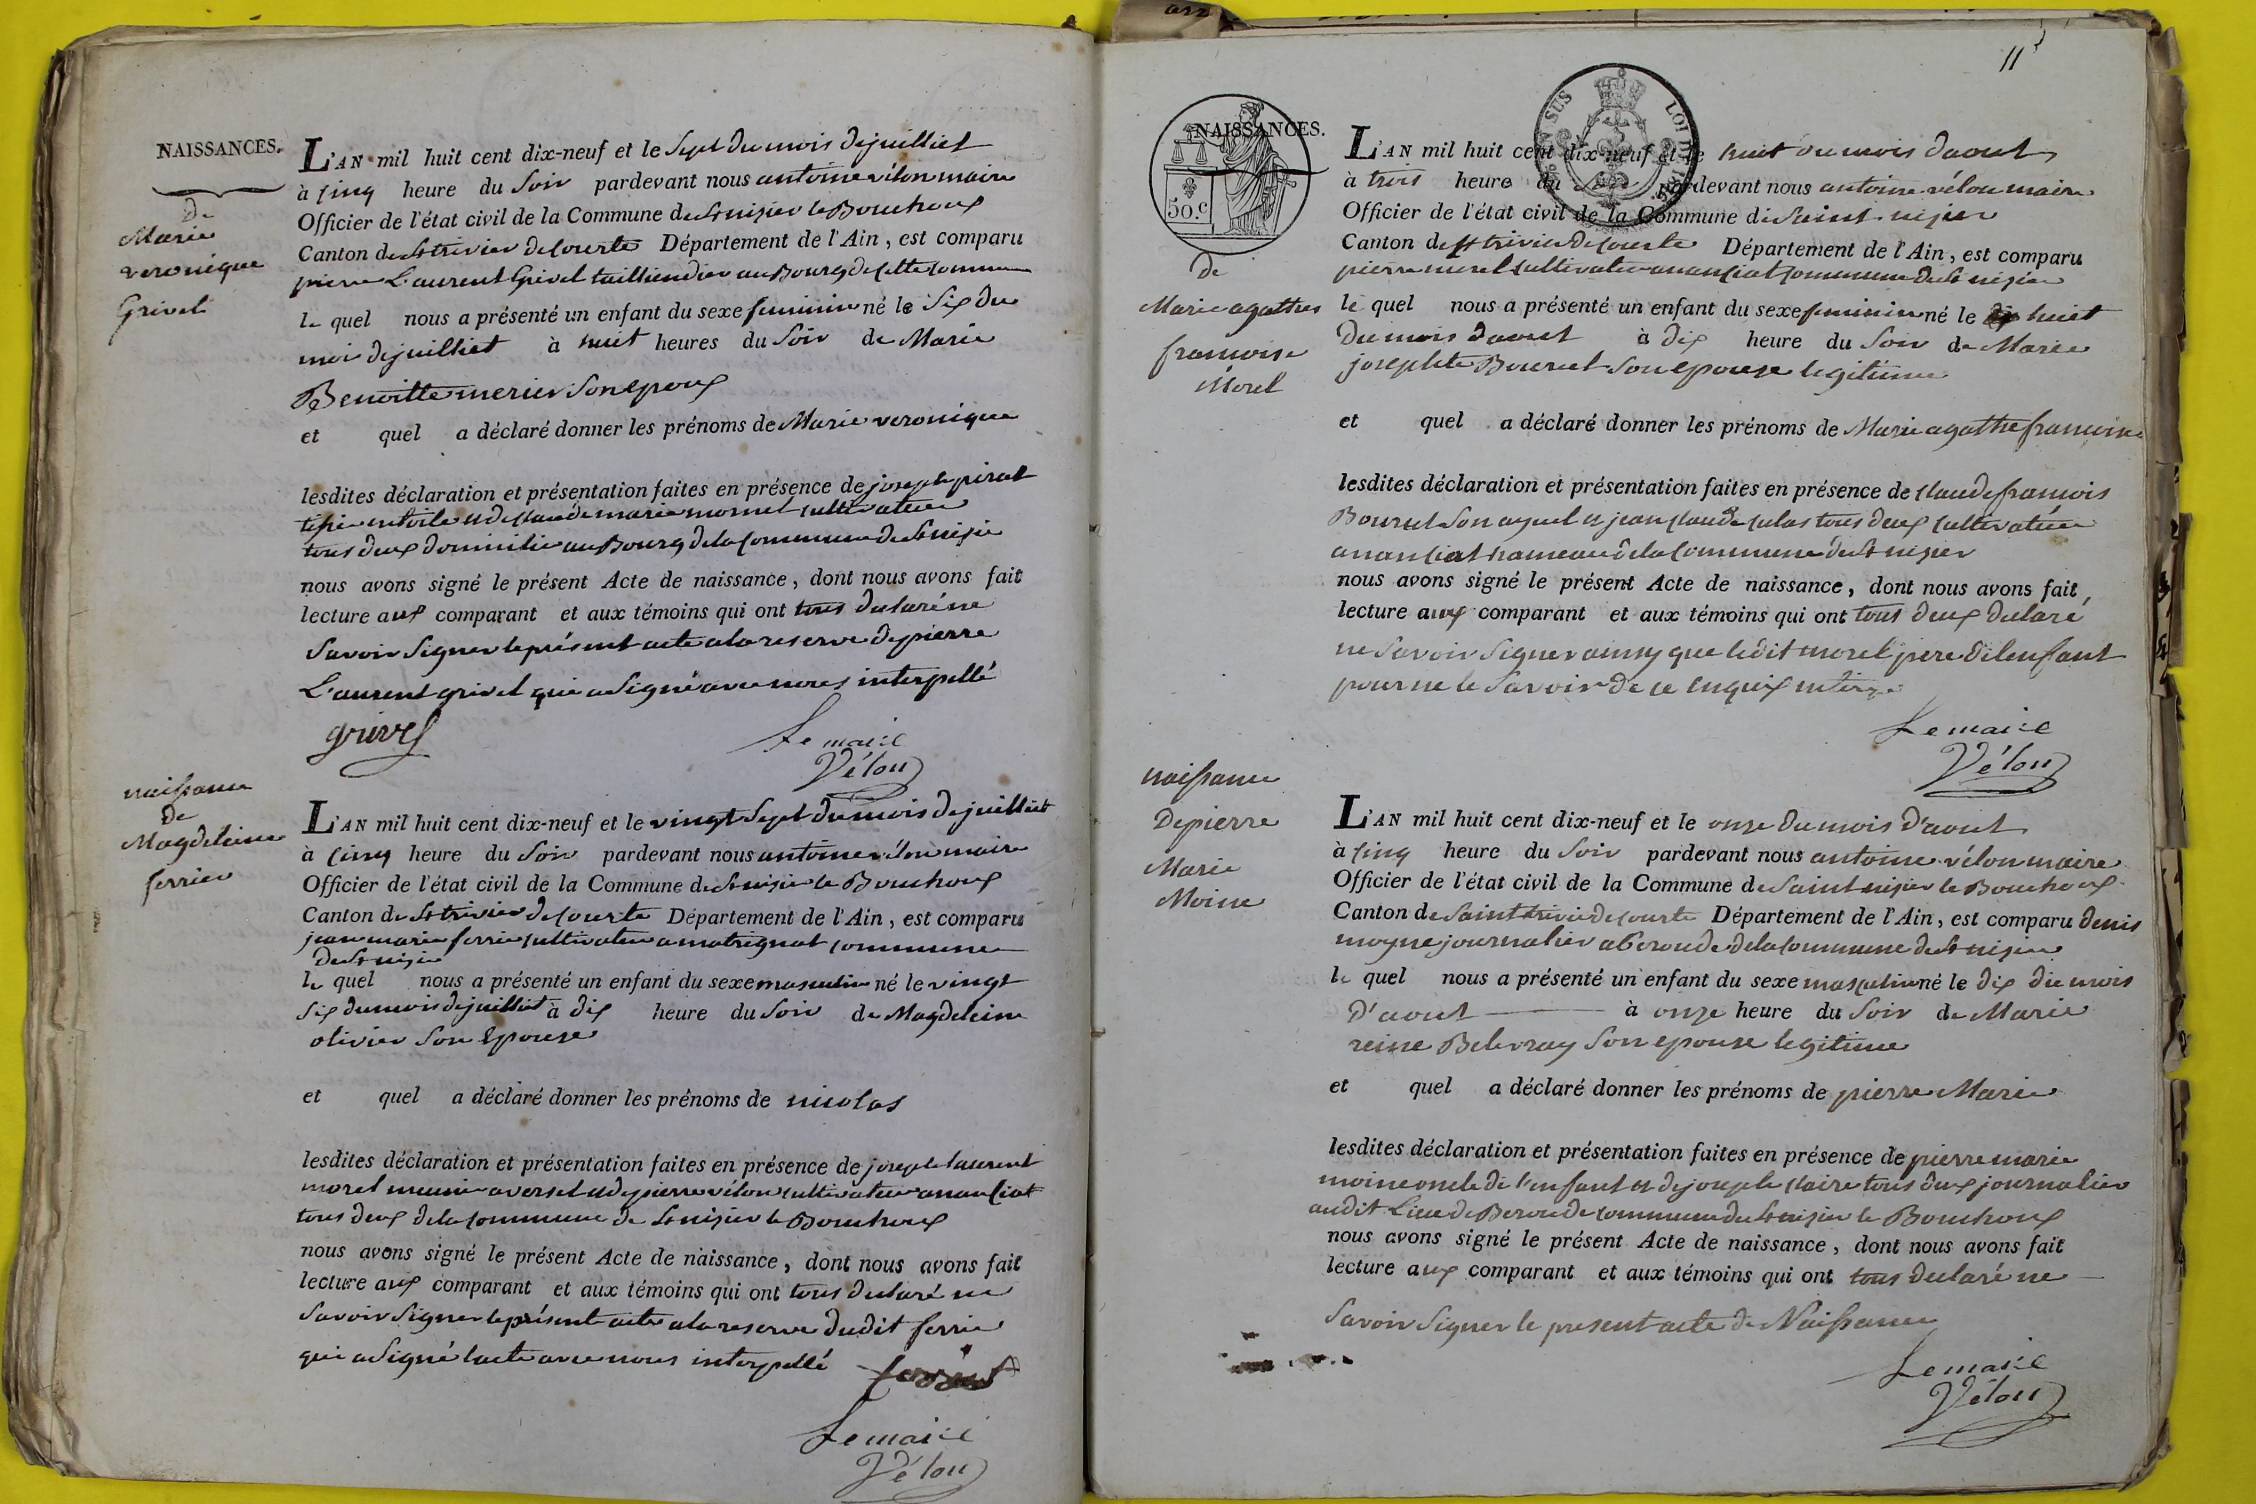 NAISSANCES.
de
Marie
veronique
Grivel
L'AN mil huit cent dix-neuf et le Sept du mois de juilliet
à cinq heure du Soir pardevant nous antoine vélon maire
Officier de l'état civil de la Commune de St nisier le Bouchoux
Canton de St trivier de Courte Département de l'Ain, est comparu
pierre L'aurent Grivel taillendier au Bourg de Cette Commune
le quel nous a présenté un enfant du sexe feminin né le Six du
moi de juilliet à huit heures du Soir de Marie
Benoitte merier Son epoux
et quel a déclaré donner les prénoms de Marie veronique
lesdites déclaration et présentation faites en présence de joseph pirat
en toile et de Claude marie mornel Cultivateur
tous deux domicilié au Bourg de la Commune de St nisie
nous avons signé le présent Acte de naissance, dont nous avons fait
lecture aux comparant et aux témoins qui ont tous declaré ne
Savoir Signer le présent acte a la reserve de pierre
L'aurent grivel qui a Signé avec nous interpellé
grivel
Le maire
Vélon
naissance
de
Magdeleine
ferrier
L'AN mil huit cent dix-neuf et le vingt Sept du mois de juilliet
à Cinq heure du Soir pardevant nous antoine vélon maire
Officier de l'état civil de la Commune de St nisier le Bouchoux
Canton de St trivier de Courte Département de l'Ain, est comparu
jean marie ferrie Cultivateur a matrignat commune
de St nisie
le quel nous a présenté un enfant du sexe masculin né le vingt
Six du mois de juilliet à dix heure du Soir de Magdeleine
olivier Son Epouse
et quel a déclaré donner les prénoms de nicolas
lesdites déclaration et présentation faites en présence de joseph laurent
morel meunier a versel et de pierre vélon Cultivateur a nanciat
tous deux de la Commune de St nisier le Bouchoux
nous avons signé le présent Acte de naissance, dont nous avons fait
lecture aux comparant et aux témoins qui ont tous declaré ne
Savoir Signer le présent acte a la reserve dudit ferrie
qui a Signé lacte avec nous interpellé
Le maire
Vélon
11
NAISSANCES.
50.c
de
Marie agathes
francoise
Morel
L'AN mil huit cent dix-neuf et le huit du mois daout
à trois heure du Soir pardevant nous antoine vélon maire
Officier de l'état civil de la Commune de Saint nisier
Canton de St trivier de Courte Département de l'Ain, est comparu
pierre morel Cultivateur a nanciat Commune de St nisier
le quel nous a présenté un enfant du sexe feminin né le huit
Du mois daout à dix heure du Soir de Marie
josephte Bourcet Son epouse legitime
et quel a déclaré donner les prénoms de Marie agathe francoise
lesdites déclaration et présentation faites en présence de Claude francois
Bourcet Son ayeul et jean Claude Culas tous deux Cultivateur
a nanciat hameau de la Commune de St nisier
nous avons signé le présent Acte de naissance, dont nous avons fait
lecture aux comparant et aux témoins qui ont tous deux declaré
ne Savoir Signer ainsy que ledit morel pere de lenfant
pour ne le Savoir de ce Enquix
Le maire
Vélon
naissance
De pierre
Marie
Moine
L'AN mil huit cent dix-neuf et le onze du mois d'aout
à cinq heure du Soir pardevant nous antoine vélon maire
Officier de l'état civil de la Commune de Saint nisier le Bouchoux
Canton de Saint trivier de Courte Département de l'Ain, est comparu denis
moyne journalier a Beroude de la Commune de St nisier
le quel nous a présenté un enfant du sexe masculin né le dix du mois
D'aout à onze heure du Soir de Marie
reine Belevray Son epouse legitime
et quel a déclaré donner les prénoms de pierre Marie
lesdites déclaration et présentation faites en présence de pierre marie
moine oncle de l'enfant et de joseph Claire tous deux journalier
audit Lieu de Beroude Commune de St nisier le Bouchoux
nous avons signé le présent Acte de naissance, dont nous avons fait
lecture aux comparant et aux témoins qui ont tous declaré ne
Savoir Signer le present acte de Naissance
Le maire
Vélon